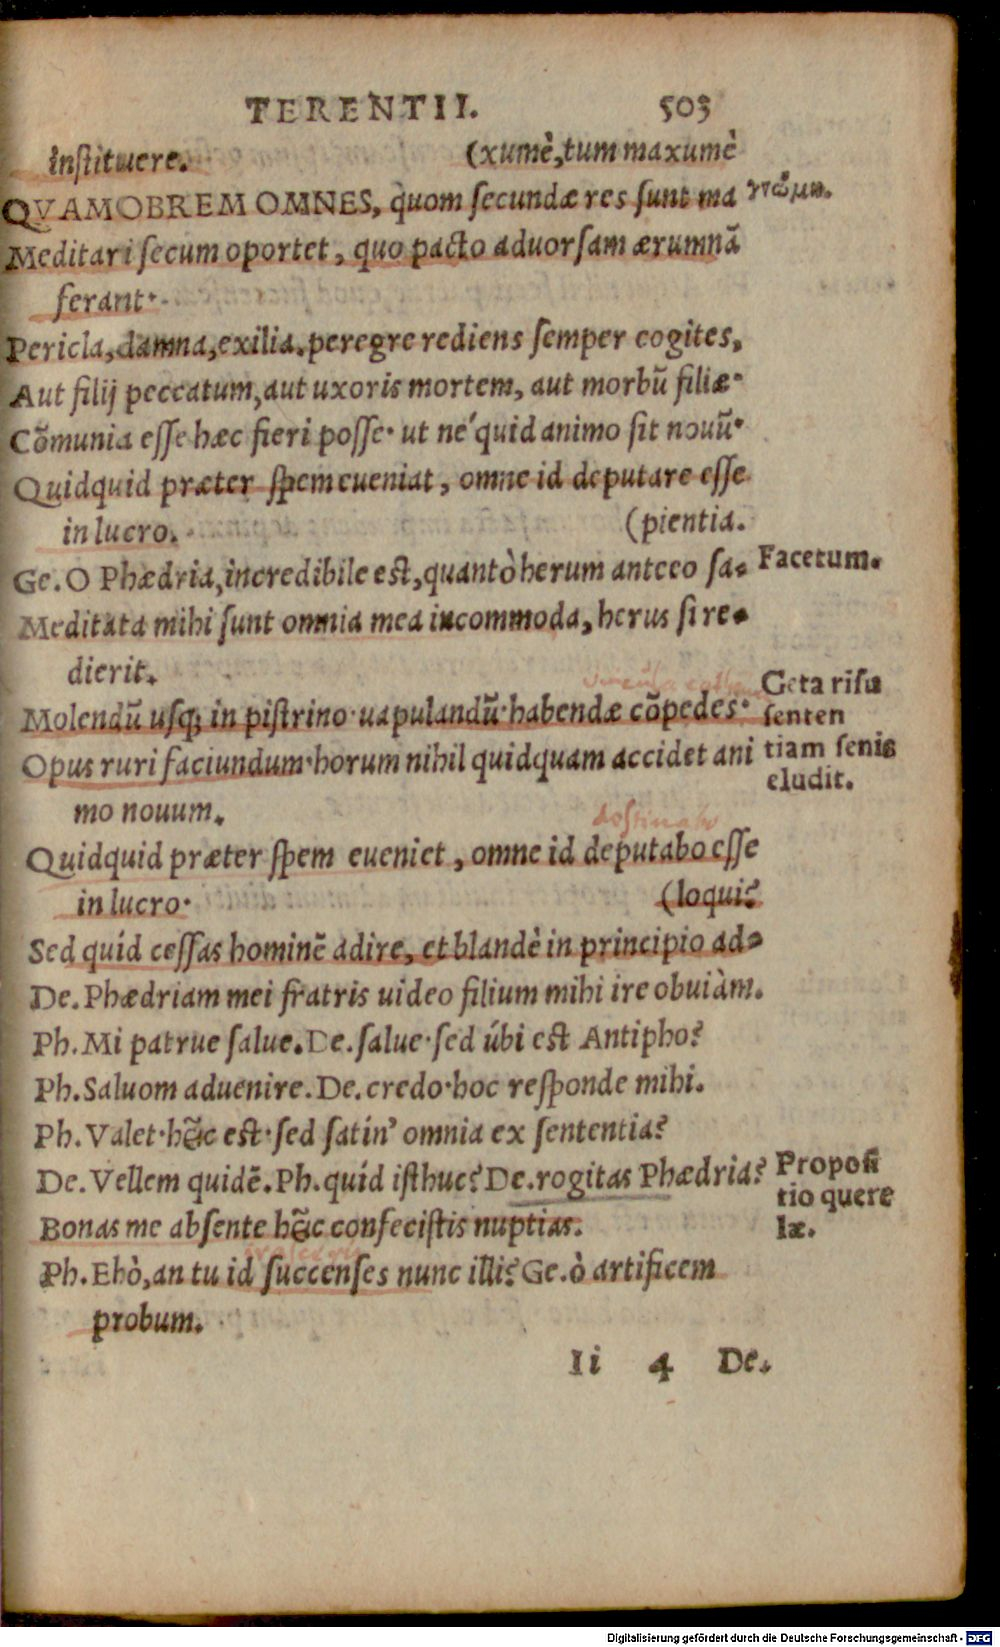 TERENTII. 503
instituere. (xumè, tum maxumè
QVAMOBREM OMNES, quom secundæ res sunt ma γνώμη.
Meditari secum oportet, quo pacto aduorsam ærumnā
ferant·
Pericla, damna, exilia. peregre rediens semper cogites,
Aut filij peccatum, aut uxoris mortem, aut morbū filiæ·
Cōmunia esse hæc fieri posse· ut ne' quid animo sit nouū·
Quidquid præter spem eueniat, omne id deputare esse
in lucro. (pientia.
Ge. O Phædria, incredibile est, quantò herum anteeo sa- Facetum.
Meditata mihi sunt omnia mea incommoda, herus si re-
dierit.
Molendū usq; in pistrino· uapulandū· habendæ cōpedes·
Geta risu
senten
tiam senis
eludit.
Opus ruri faciundum· horum nihil quidquam accidet ani
mo nouum.
Quidquid præter spem eueniet, omne id deputabo esse
in lucro· (loqui?
Sed quíd cessas hominē adire, et blandè in principio ad-
De. Phædriam mei fratris uideo filium mihi ire obuiàm.
Ph. Mi patrue salue. De. salue· sed úbi est Antipho?
Ph. Saluom aduenire. De. credo· hoc responde mihi.
Ph. Valet· hîc est· sed satín' omnia ex sententia?
De. Vellem quidē. Ph. quíd isthuc? De. rogitas Phædria?
Proposi
tio quere
læ.
Bonas me absente hîc confecistis nuptias.
Ph. Ehò, an tu id succenses nunc illi? Ge. ò artificem
probum.
Ii 4 De.
Digitalisierung gefördert durch die Deutsche Forschungsgemeinschaft - DFG